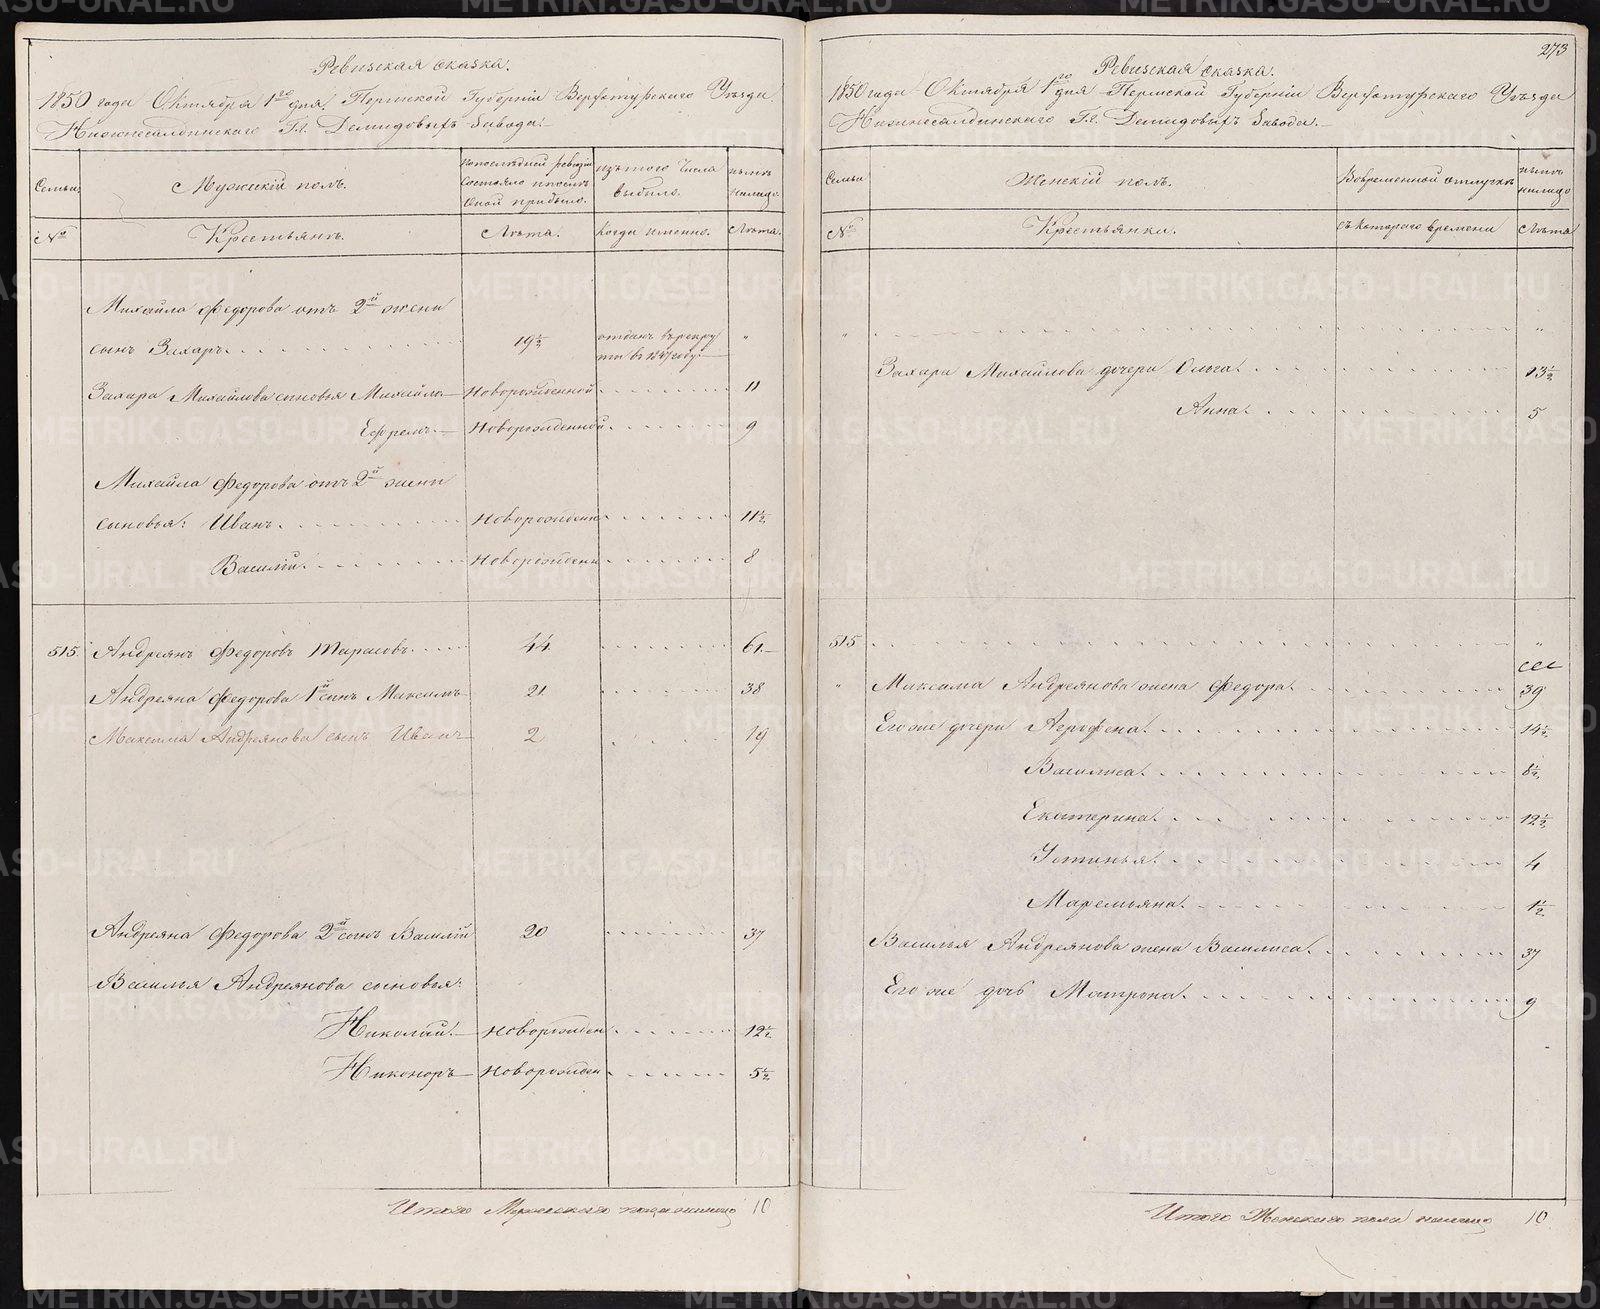 Ревизская сказка.
1850 года Октября 1го дня, Пермской Губерніи Верхотурскаго Уѣзда
Нижнесалдинскаго Г.г. Демидовыхъ Завода.
Семьи
Мужскій полъ.
По последней ревизіи состояло и после оной прибыло.
изъ того числа выбыло.
нынѣ налицо.
№
Крестьянъ.
Лѣта.
когда именно.
Лѣта.
Михайла Федорова отъ 2й жены
сынъ Захаръ. 19½ отданъ въ рекруты въ 1847 году. "
Захара Михайлова сыновья Михайло Новорожденной 11
Ефремъ. Новорожденной 9
Михайла Федорова отъ 2й жены
сыновья: Иванъ. Новорожденн 11½
Василій. Новорожденн 8
515. Андреянъ Федоровъ Тарасовъ. 44. 61.
Андреяна Федорова 1й сынъ Максимъ 21 38
Максима Андреянова сынъ Иванъ 2 19
Андреяна Федорова 2й сынъ Василій 20 37
Василья Андреянова сыновья:
Николай. Новорожден 12½
Никоноръ Новорожден 5½
Итого Мужескаго пола налицо 10
273
Ревизская сказка.
1850 года Октября 1го дня Пермской Губерніи Верхотурскаго Уѣзда
Нижнесалдинскаго Г.г. Демидовыхъ Завода.
Семьи
Женскій полъ.
Во временной отлучкѣ
нынѣ налицо
№
Крестьянки.
съ котораго времени
Лѣта
" "
Захара Михайлова дочери Ольга. 13½
Анна. 5
515 "
" Максима Андреянова жена Федора. 39
Его же дочери Агрофена. 14½
Василиса. 8½
Екатерина. 12½
Устинья. 4
Маремьяна. 1½
Василья Андреянова жена Василиса. 37
Его же дочь Матрона. 9
Итого Женскаго пола налицо 10
METRIKI.GASO-URAL.RU